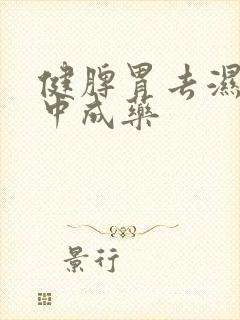 健脾胃去濕
中成藥
景行